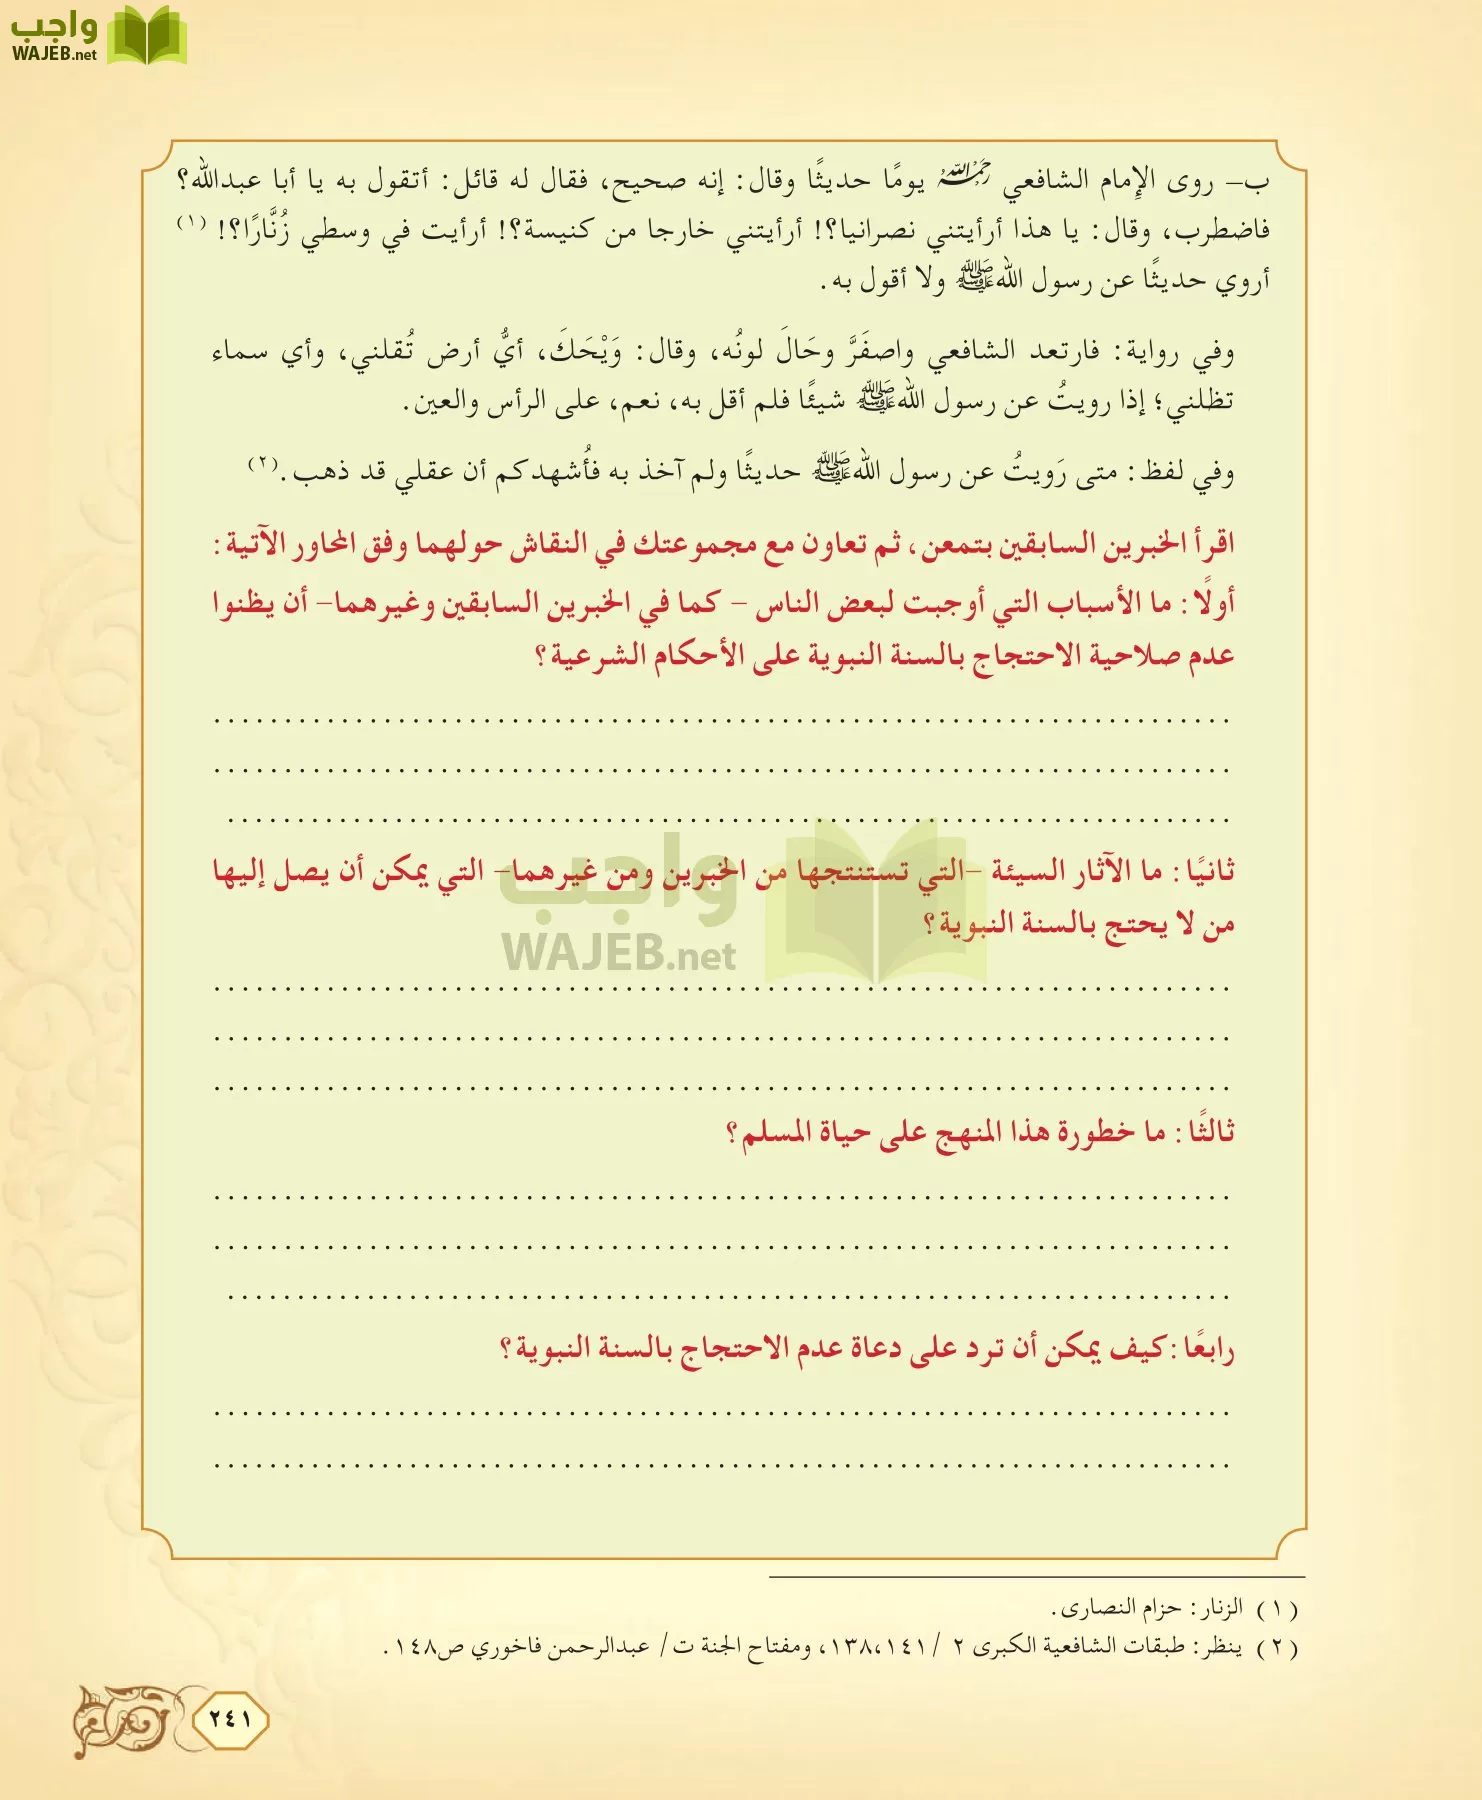 واجب
WAJEB.net
ب– روى الإمام الشافعي رحمه الله يومًا حديثًا وقال: إنه صحيح، فقال له قائل: أتقول به يا أبا عبدالله؟
فاضطرب، وقال: يا هذا أرأيتني نصرانيا؟! أرأيتني خارجا من كنيسة؟! أرأيت في وسطي زُنَّارًا؟! (١)
أروي حديثًا عن رسول الله ﷺ ولا أقول به.
وفي رواية: فارتعد الشافعي واصفَرَّ وحَالَ لونُه، وقال: وَيْحَكَ، أيُّ أرض تُقلني، وأي سماء
تظلني؛ إذا رويتُ عن رسول الله ﷺ شيئًا فلم أقل به، نعم، على الرأس والعين.
وفي لفظ: متى رَويتُ عن رسول الله ﷺ حديثًا ولم آخذ به فأُشهدكم أن عقلي قد ذهب.(٢)
اقرأ الخبرين السابقين بتمعن، ثم تعاون مع مجموعتك في النقاش حولهما وفق المحاور الآتية:
أولًا: ما الأسباب التي أوجبت لبعض الناس – كما في الخبرين السابقين وغيرهما– أن يظنوا
عدم صلاحية الاحتجاج بالسنة النبوية على الأحكام الشرعية؟
ثانيًا: ما الآثار السيئة –التي تستنتجها من الخبرين ومن غيرهما– التي يمكن أن يصل إليها
من لا يحتج بالسنة النبوية؟
واجب
WAJEB.net
ثالثًا: ما خطورة هذا المنهج على حياة المسلم؟
رابعًا: كيف يمكن أن ترد على دعاة عدم الاحتجاج بالسنة النبوية؟
(١) الزنار: حزام النصارى.
(٢) ينظر: طبقات الشافعية الكبرى ٢ /١٣٨،١٤١، ومفتاح الجنة ت/ عبدالرحمن فاخوري ص١٤٨.
٢٤١